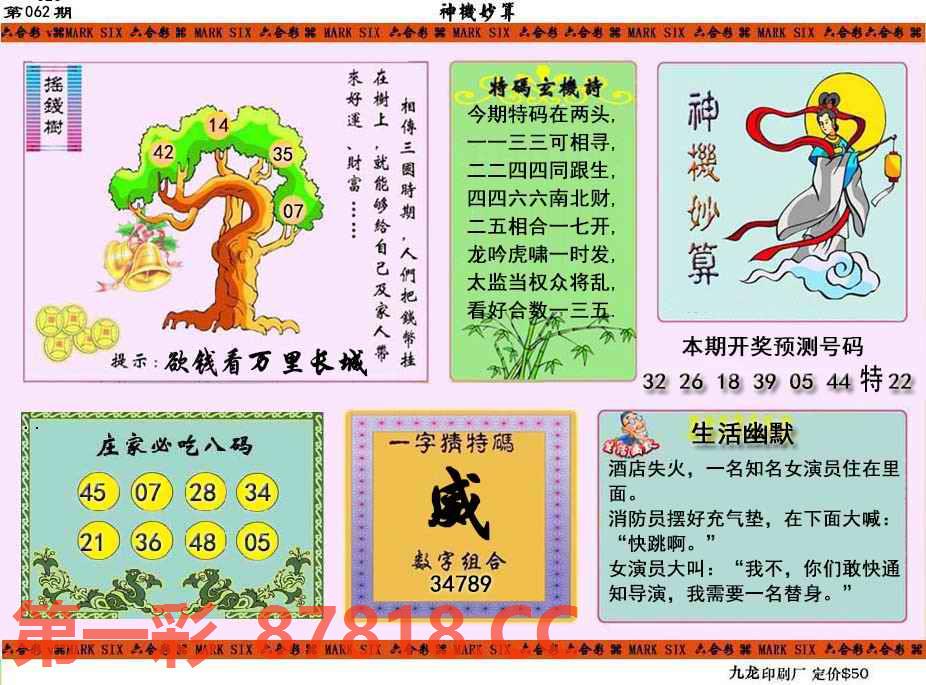 第062期
神機妙算
六合彩 MARK SIX 六合彩 MARK SIX 六合彩 MARK SIX 六合彩 MARK SIX 六合彩 MARK SIX 六合彩 MARK SIX 六合彩 MARK SIX 六合彩
搖錢樹
14
42
35
07
相傳三國時期，人們把錢幣挂
在樹上，就能够给自己及家人帶
來好運、財富……
提示：欲钱看万里长城
特碼玄機詩
今期特码在两头,
一一三三可相寻,
二二四四同跟生,
四四六六南北财,
二五相合一七开,
龙吟虎啸一时发,
太监当权众将乱,
看好合数一三五.
神機妙算
本期开奖预测号码
32 26 18 39 05 44 特 22
庄家必吃八码
45 07 28 34
21 36 48 05
一字猜特碼
威
数字组合
34789
生活幽默
生活幽默
酒店失火，一名知名女演员住在里
面。
消防员摆好充气垫，在下面大喊：
“快跳啊。”
女演员大叫：“我不，你们敢快通
知导演，我需要一名替身。”
第一彩 87818.CC
六合彩 MARK SIX 六合彩 MARK SIX 六合彩 MARK SIX 六合彩 MARK SIX 六合彩 MARK SIX 六合彩 MARK SIX 六合彩 MARK SIX 六合彩
九龙印刷厂 定价$50